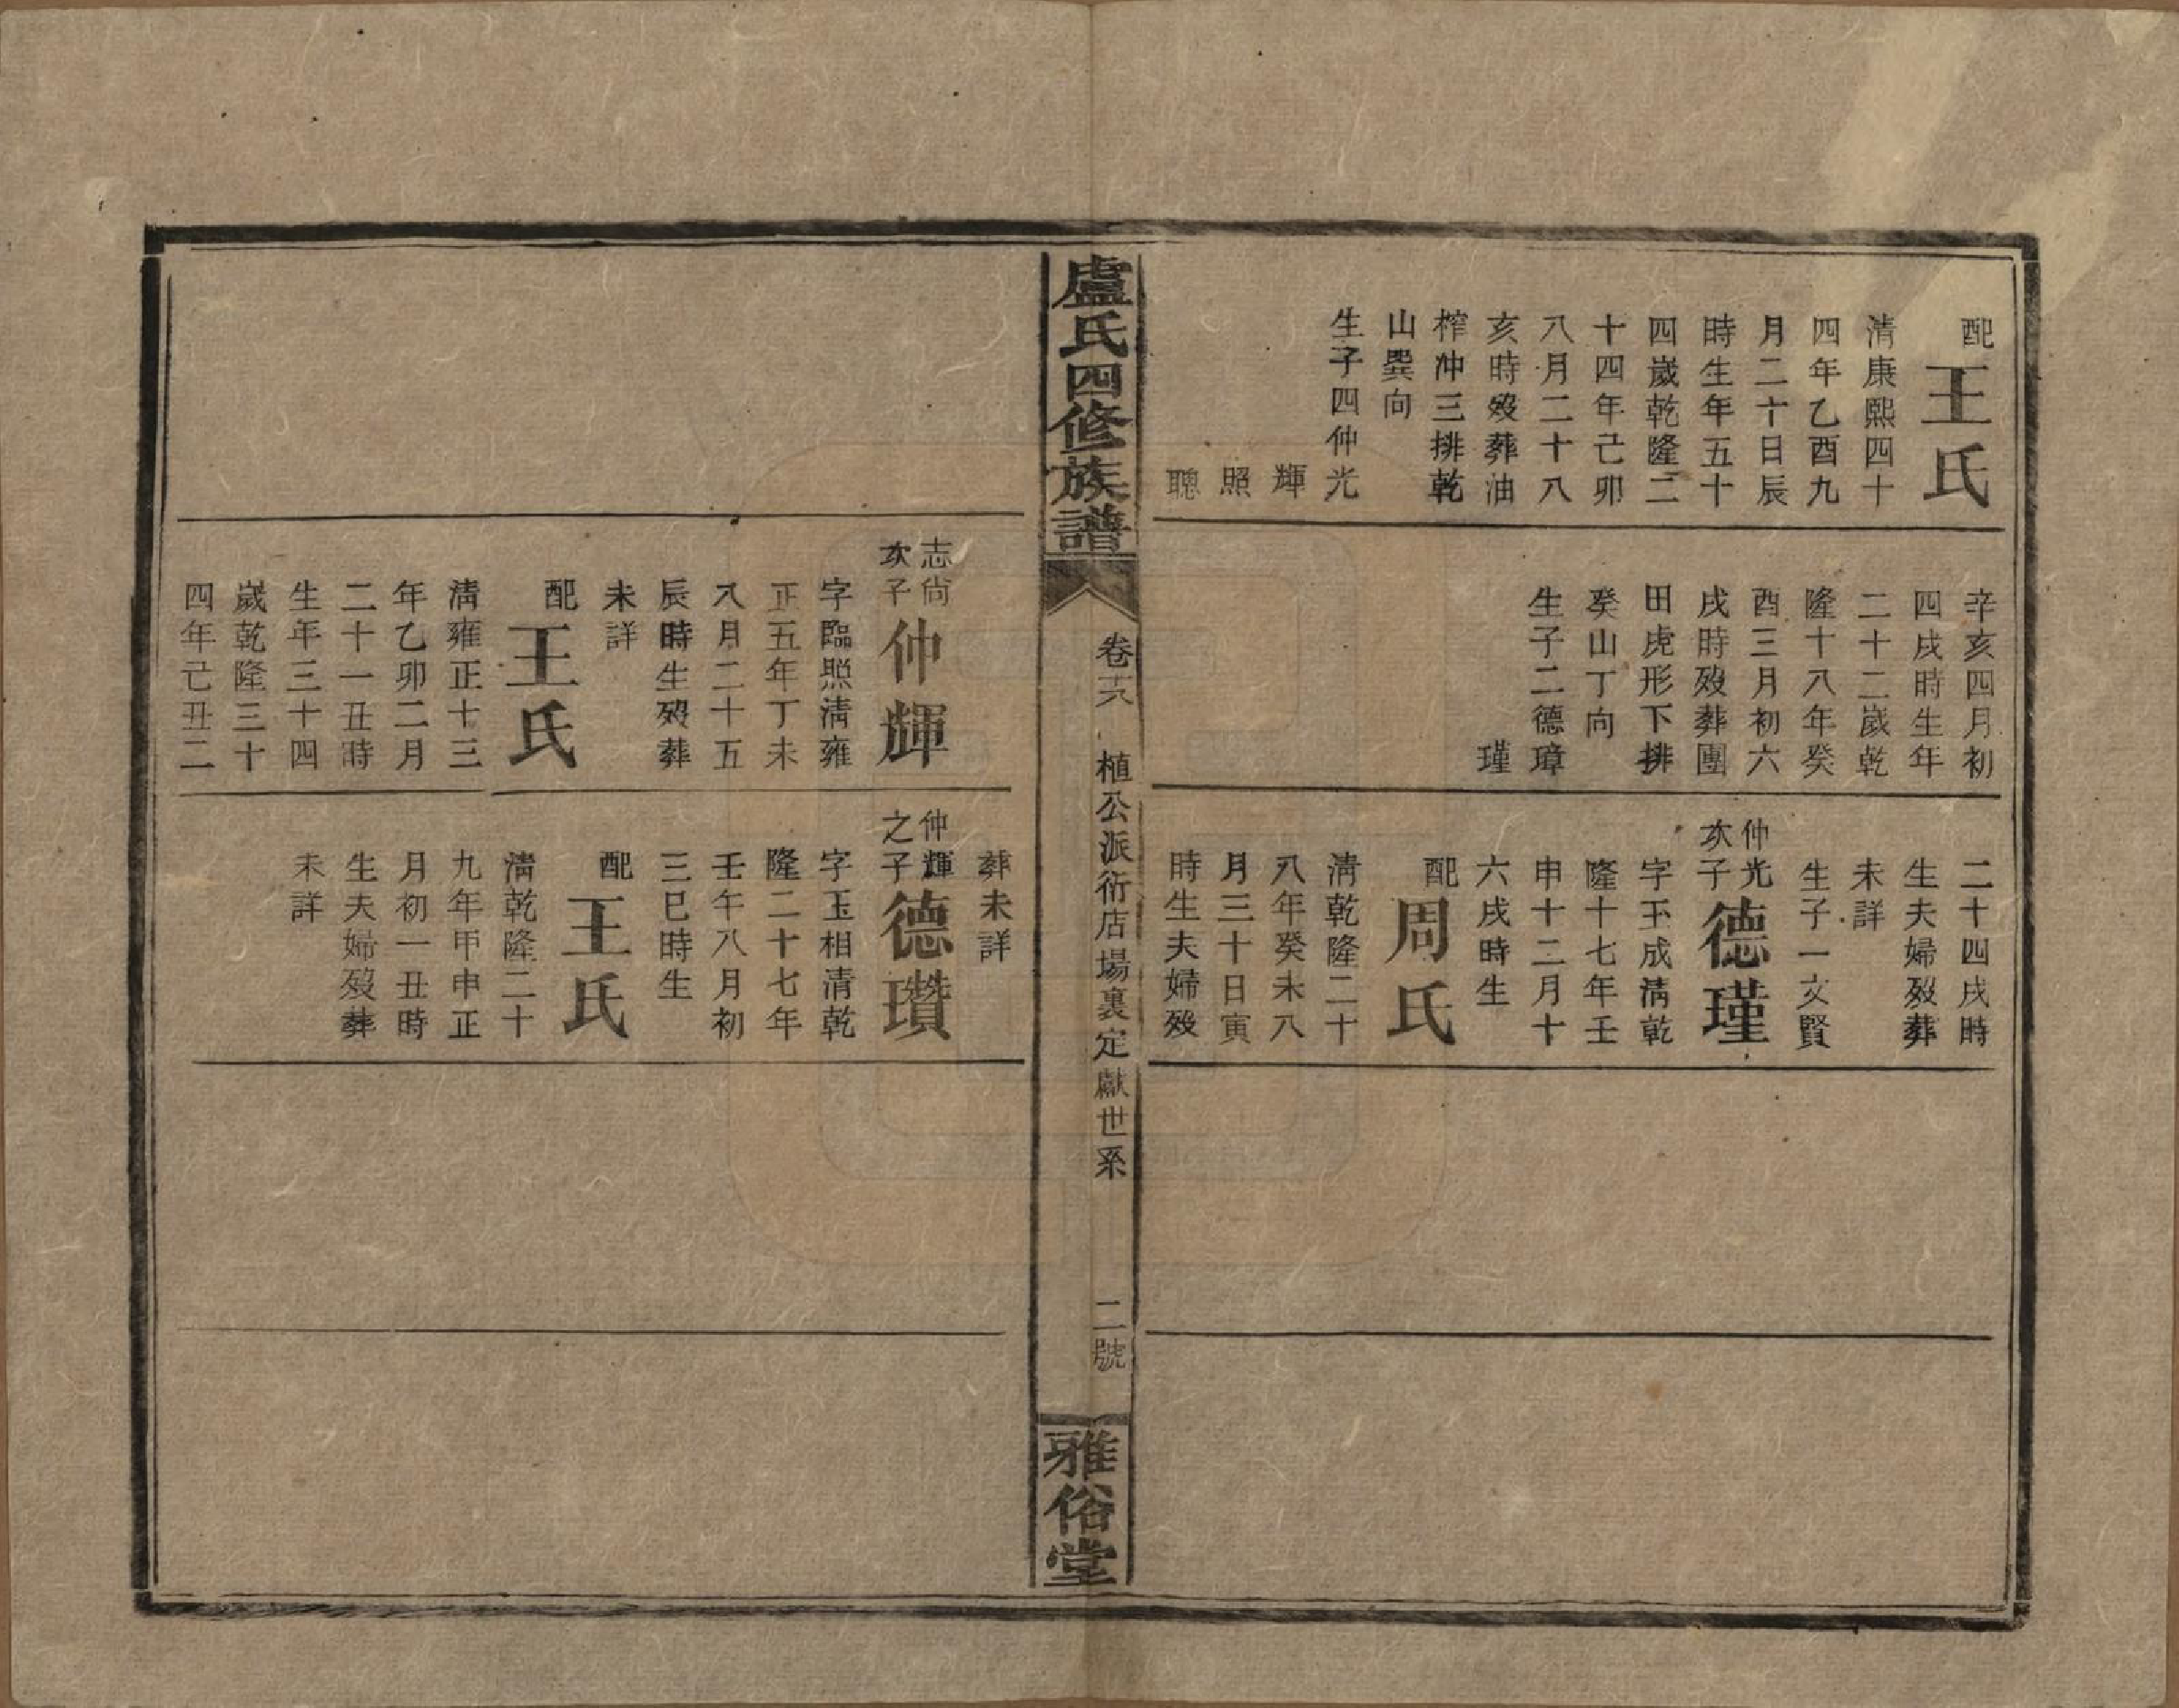 配王氏
清康熙四十
四年乙酉九
月二十日辰
時生年五十
四歲乾隆二
十四年己卯
八月二十八
亥時歿葬油
榨冲三排乾
山巽向
生子四仲光
輝
照
聰
辛亥四月初
四戌時生年
二十二歲乾
隆十八年癸
酉三月初六
戌時歿葬團
田虎形下排
癸山丁向
生子二德璋
瑾
二十四戌時
生夫婦歿葬
未詳
生子一文賢
仲光
次子德瑾
字玉成清乾
隆十七年壬
申十二月十
六戌時生
配周氏
清乾隆二十
八年癸未八
月三十日寅
時生夫婦歿
盧氏四修族譜
卷十六
植公派衍店場裏定獻世系
二號
雅俗堂
志尙
次子仲輝
字臨照清雍
正五年丁未
八月二十五
辰時生歿葬
未詳
配王氏
清雍正十三
年乙卯二月
二十一丑時
生年三十四
歲乾隆三十
四年己丑二
葬未詳
仲輝
之子德瓚
字玉相清乾
隆二十七年
壬午八月初
三巳時生
配王氏
清乾隆二十
九年甲申正
月初一丑時
生夫婦歿葬
未詳